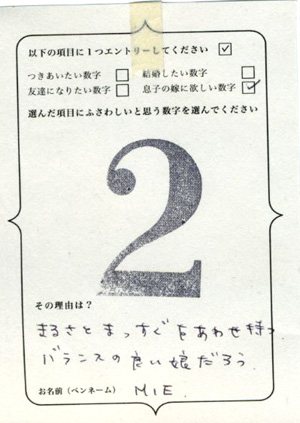 以下の項目に1つエントリーしてください ☑
つきあいたい数字 □ 結婚したい数字 □
友達になりたい数字 □ 息子の嫁に欲しい数字 ☑
選んだ項目にふさわしいと思う数字を選んでください
2
その理由は？
まるさとまっすぐをあわせ持つ
バランスの良い娘だろう。
お名前（ペンネーム） MIE.